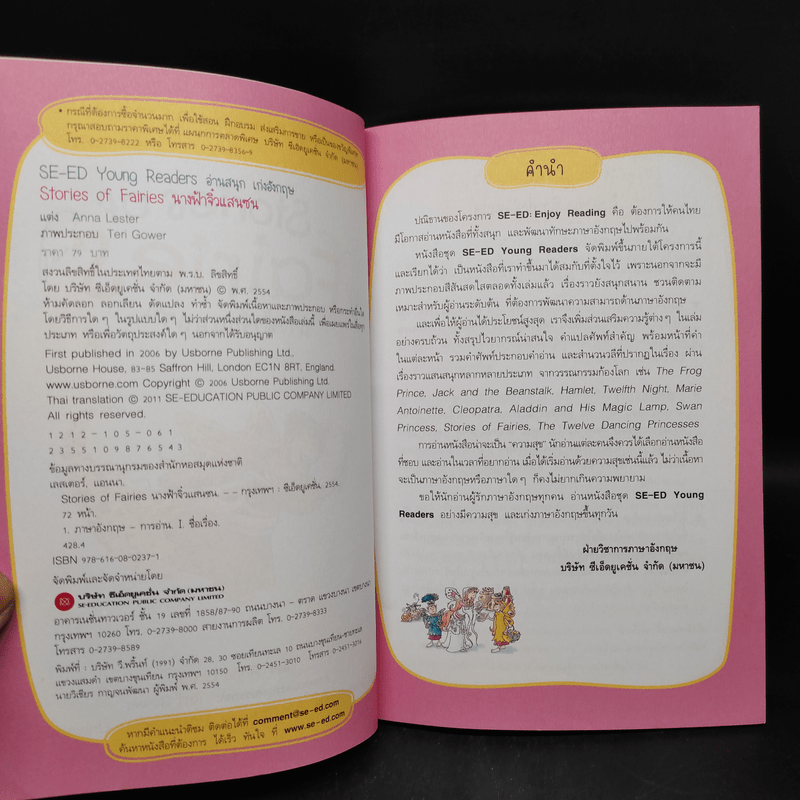 • กรณีที่ต้องการซื้อจำนวนมาก เพื่อใช้สอน ฝึกอบรม ส่งเสริมการขาย หรือเป็นของขวัญพิเศษ
กรุณาสอบถามราคาพิเศษได้ที่ แผนกการตลาดพิเศษ บริษัท ซีเอ็ดยูเคชั่น จำกัด (มหาชน)
โทร. 0-2739-8222 หรือ โทรสาร 0-2739-8356-9
SE-ED Young Readers อ่านสนุก เก่งอังกฤษ
Stories of Fairies นางฟ้าจิ๋วแสนซน
แต่ง Anna Lester
ภาพประกอบ Teri Gower
ราคา 79 บาท
สงวนลิขสิทธิ์ในประเทศไทยตาม พ.ร.บ. ลิขสิทธิ์
โดย บริษัท ซีเอ็ดยูเคชั่น จำกัด (มหาชน) © พ.ศ. 2554
ห้ามคัดลอก ลอกเลียน ดัดแปลง ทำซ้ำ จัดพิมพ์เนื้อหาและภาพประกอบ หรือกระทำอื่นใด
โดยวิธีการใด ๆ ในรูปแบบใด ๆ ไม่ว่าส่วนหนึ่งส่วนใดของหนังสือเล่มนี้ เพื่อเผยแพร่ในสื่อทุก
ประเภท หรือเพื่อวัตถุประสงค์ใด ๆ นอกจากได้รับอนุญาต
First published in 2006 by Usborne Publishing Ltd.,
Usborne House, 83-85 Saffron Hill, London EC1N 8RT, England.
www.usborne.com Copyright © 2006 Usborne Publishing Ltd.
Thai translation © 2011 SE-EDUCATION PUBLIC COMPANY LIMITED
All rights reserved.
1 2 1 2 - 1 0 5 - 0 6 1
2 3 5 5 1 0 9 8 7 6 5 4 3
ข้อมูลทางบรรณานุกรมของสำนักหอสมุดแห่งชาติ
เลสเตอร์, แอนนา.
Stories of Fairies นางฟ้าจิ๋วแสนซน. - - กรุงเทพฯ : ซีเอ็ดยูเคชั่น, 2554.
72 หน้า.
1. ภาษาอังกฤษ - การอ่าน. I. ชื่อเรื่อง.
428.4
ISBN 978-616-08-0237-1
จัดพิมพ์และจัดจำหน่ายโดย
บริษัท ซีเอ็ดยูเคชั่น จำกัด (มหาชน)
SE-EDUCATION PUBLIC COMPANY LIMITED
อาคารเนชั่นทาวเวอร์ ชั้น 19 เลขที่ 1858/87-90 ถนนบางนา - ตราด แขวงบางนา เขตบางนา
กรุงเทพฯ 10260 โทร. 0-2739-8000 สายงานการผลิต โทร. 0-2739-8333
โทรสาร 0-2739-8589
พิมพ์ที่ : บริษัท วี.พริ้นท์ (1991) จำกัด 28, 30 ซอยเทียนทะเล 10 ถนนบางขุนเทียน-ชายทะเล
แขวงแสมดำ เขตบางขุนเทียน กรุงเทพฯ 10150 โทร. 0-2451-3010 โทรสาร 0-2451-3014
นายวิเชียร กาญจนพัฒนา ผู้พิมพ์ พ.ศ. 2554
หากมีคำแนะนำติชม ติดต่อได้ที่ comment@se-ed.com
ค้นหาหนังสือที่ต้องการ ได้เร็ว ทันใจ ที่ www.se-ed.com
คำนำ
ปณิธานของโครงการ SE-ED: Enjoy Reading คือ ต้องการให้คนไทย
มีโอกาสอ่านหนังสือที่ทั้งสนุก และพัฒนาทักษะภาษาอังกฤษไปพร้อมกัน
หนังสือชุด SE-ED Young Readers จัดพิมพ์ขึ้นภายใต้โครงการนี้
และเรียกได้ว่า เป็นหนังสือที่เราทำขึ้นมาได้สมกับที่ตั้งใจไว้ เพราะนอกจากจะมี
ภาพประกอบสีสันสดใสตลอดทั้งเล่มแล้ว เรื่องราวยังสนุกสนาน ชวนติดตาม
เหมาะสำหรับผู้อ่านระดับต้น ที่ต้องการพัฒนาความสามารถด้านภาษาอังกฤษ
และเพื่อให้ผู้อ่านได้ประโยชน์สูงสุด เราจึงเพิ่มส่วนเสริมความรู้ต่างๆ ในเล่ม
อย่างครบถ้วน ทั้งสรุปไวยากรณ์น่าสนใจ คำแปลศัพท์สำคัญ พร้อมหน้าที่คำ
ในแต่ละหน้า รวมคำศัพท์ประกอบคำอ่าน และสำนวนวลีที่ปรากฏในเรื่อง ผ่าน
เรื่องราวแสนสนุกหลากหลายประเภท จากวรรณกรรมก้องโลก เช่น The Frog
Prince, Jack and the Beanstalk, Hamlet, Twelfth Night, Marie
Antoinette, Cleopatra, Aladdin and His Magic Lamp, Swan
Princess, Stories of Fairies, The Twelve Dancing Princesses
การอ่านหนังสือน่าจะเป็น "ความสุข" นักอ่านแต่ละคนจึงควรได้เลือกอ่านหนังสือ
ที่ชอบ และอ่านในเวลาที่อยากอ่าน เมื่อได้เริ่มอ่านด้วยความสุขเช่นนี้แล้ว ไม่ว่าเนื้อหา
จะเป็นภาษาอังกฤษหรือภาษาใด ๆ ก็คงไม่ยากเกินความพยายาม
ขอให้นักอ่านผู้รักภาษาอังกฤษทุกคน อ่านหนังสือชุด SE-ED Young
Readers อย่างมีความสุข และเก่งภาษาอังกฤษขึ้นทุกวัน
ฝ่ายวิชาการภาษาอังกฤษ
บริษัท ซีเอ็ดยูเคชั่น จำกัด (มหาชน)